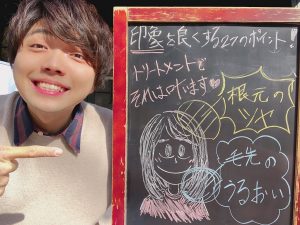 印象を良くする2つのポイント!
トリートメントで
それは叶います
根元の
ツヤ
毛先の
うるおい